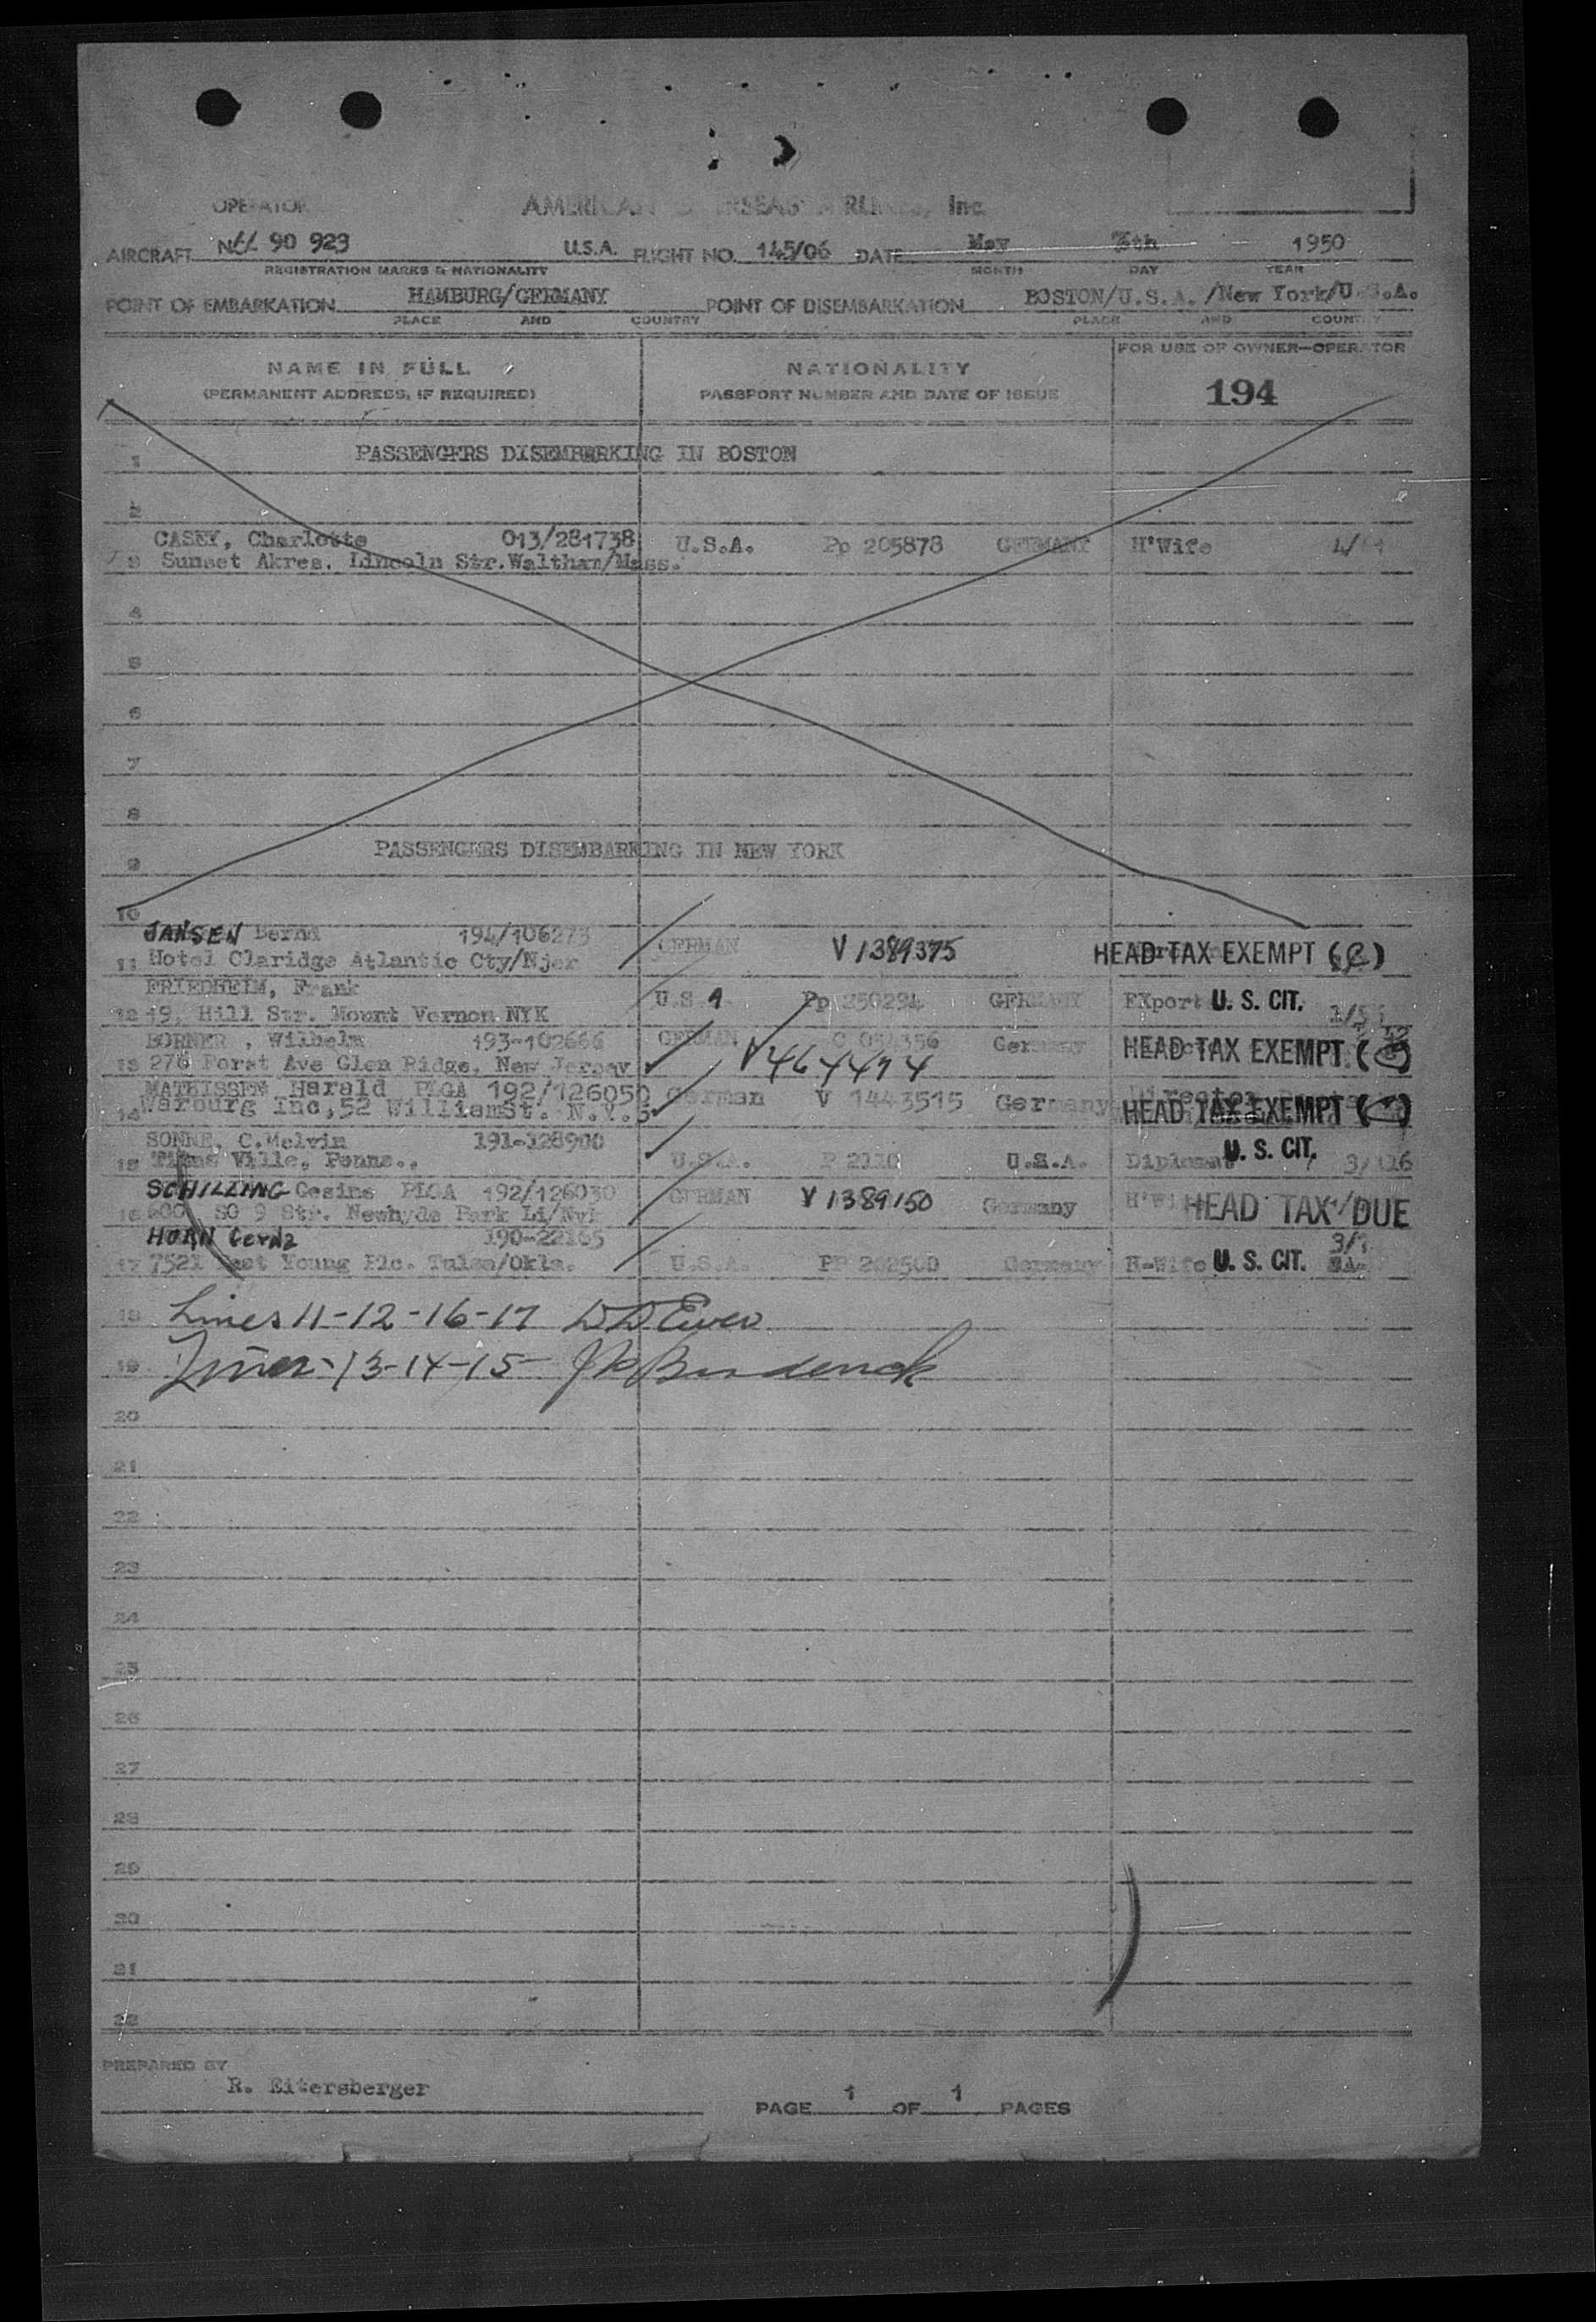 OPERATOR AMERICAN OVERSEAS AIRLINES, Inc
AIRCRAFT 90 923 U.S.A. FLIGHT NO. 145/06 DATE May 1950
REGISTRATION MARKS & NATIONALITY MONTH DAY YEAR
POINT OF EMBARKATION HAMBURG/GERMANY POINT OF DISEMBARKATION BOSTON/U.S.A. /New York/U.S.A.
PLACE AND COUNTRY PLACE AND COUNTRY
NAME IN FULL NATIONALITY FOR USE OF OWNER—OPERATOR
(PERMANENT ADDRESS, IF REQUIRED) PASSPORT NUMBER AND DATE OF ISSUE 194
1 PASSENGERS DISEMBARKING IN BOSTON
2
CASEY, Charlotte 013/281738 U.S.A. Pp 205878 GERMANY H'Wife
3 Sunset Akres. Lincoln Str.Waltham/Mass.
4
5
6
7
8
9 PASSENGERS DISEMBARKING IN NEW YORK
10
JANSEN Bernd 194/106273 GERMAN V 1389375 HEAD TAX EXEMPT
11 Hotel Claridge Atlantic Cty/Njer
FRIEDHEIM, Frank U.S.A. Pp 250294 GERMANY Export U. S. CIT.
12 19, Hill Str. Mount Vernon NYK
BORNER , Wilhelm 193-102666 GERMAN Germany HEAD TAX EXEMPT
13 276 Forst Ave Glen Ridge, New Jersey
MATHISSEN Harald PLGA 192/126050 German V 1443515 Germany HEAD TAX EXEMPT
14 Warburg Inc,52 WilliamSt. N.Y.5
SONNE, C.Melvin 191-128900 U.S.A. P 2110 U.S.A. Diplomat U. S. CIT. 3/116
15 Ville, Penns.,
SCHILLING Gesine PLGA 192/126030 GERMAN V 1389150 Germany HEAD TAX DUE
16 600 SO 9 Str. Newhyde Park Li/Nyk
HORN Gerda 190-22165
17 7521 East Young Plc. Tulsa/Okla. U.S.A. PP 202500 Germany H-Wife U. S. CIT.
18 Lines 11-12-16-17
19 Lines-13-14-15
20
21
22
23
24
25
26
27
28
29
30
31
32
PREPARED BY
R. Eitersberger
PAGE 1 OF 1 PAGES